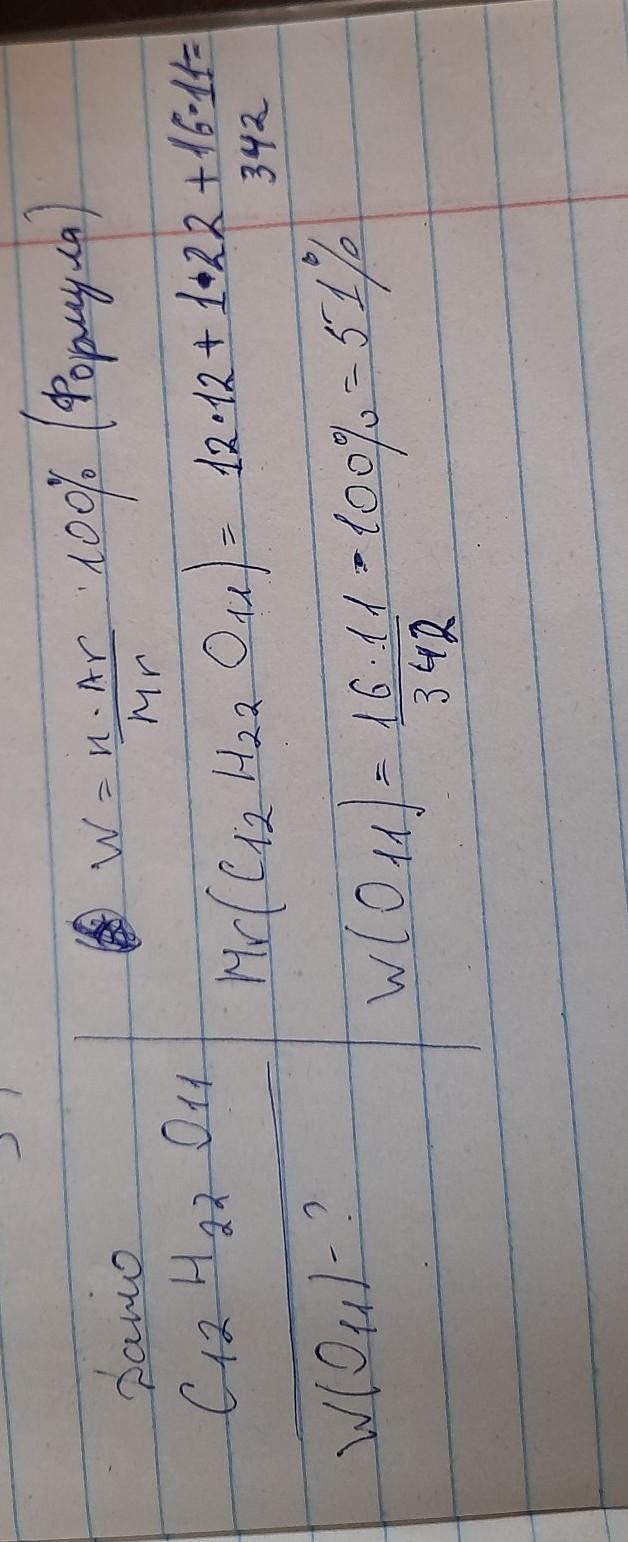 Дано
C12 H22 O11
W(O11) - ?
W = n · Ar / Mr · 100% (Формула)
Mr(C12 H22 O11) = 12·12 + 1·22 + 16·11 =
342
W(O11) = 16·11 / 342 · 100% = 51%